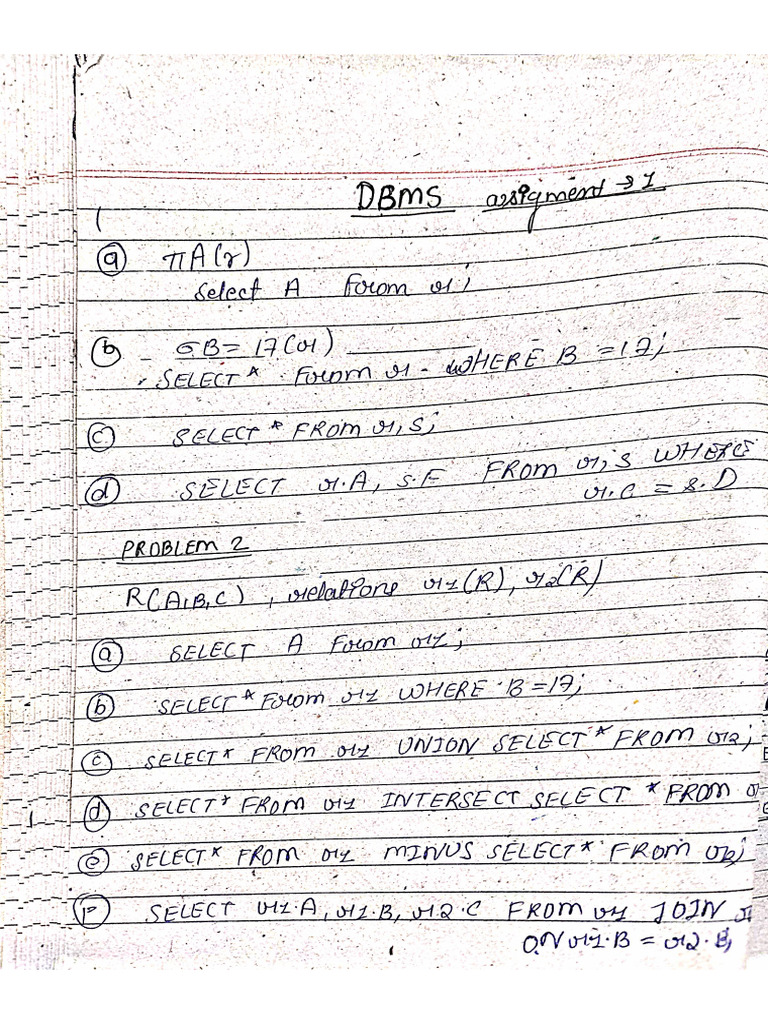 DBMS assigment → 1
1
(a) πA(r)
Select A From r;
(b) σB = 17(r)
SELECT * From r - WHERE B = 17;
(c) SELECT * FROM r, S;
(d) SELECT r.A, S.F FROM r, s WHERE
r.c = s.D
PROBLEM 2
R(A,B,C), relations r1(R), r2(R)
(a) SELECT A From r1;
(b) SELECT * From r1 WHERE B = 17;
(c) SELECT * FROM r1 UNION SELECT * FROM r2;
(d) SELECT * FROM r1 INTERSECT SELECT * FROM
(e) SELECT * FROM r1 MINUS SELECT * FROM r2;
(F) SELECT r1.A, r1.B, r2.C FROM r1 JOIN
ON r1.B = r2.B;